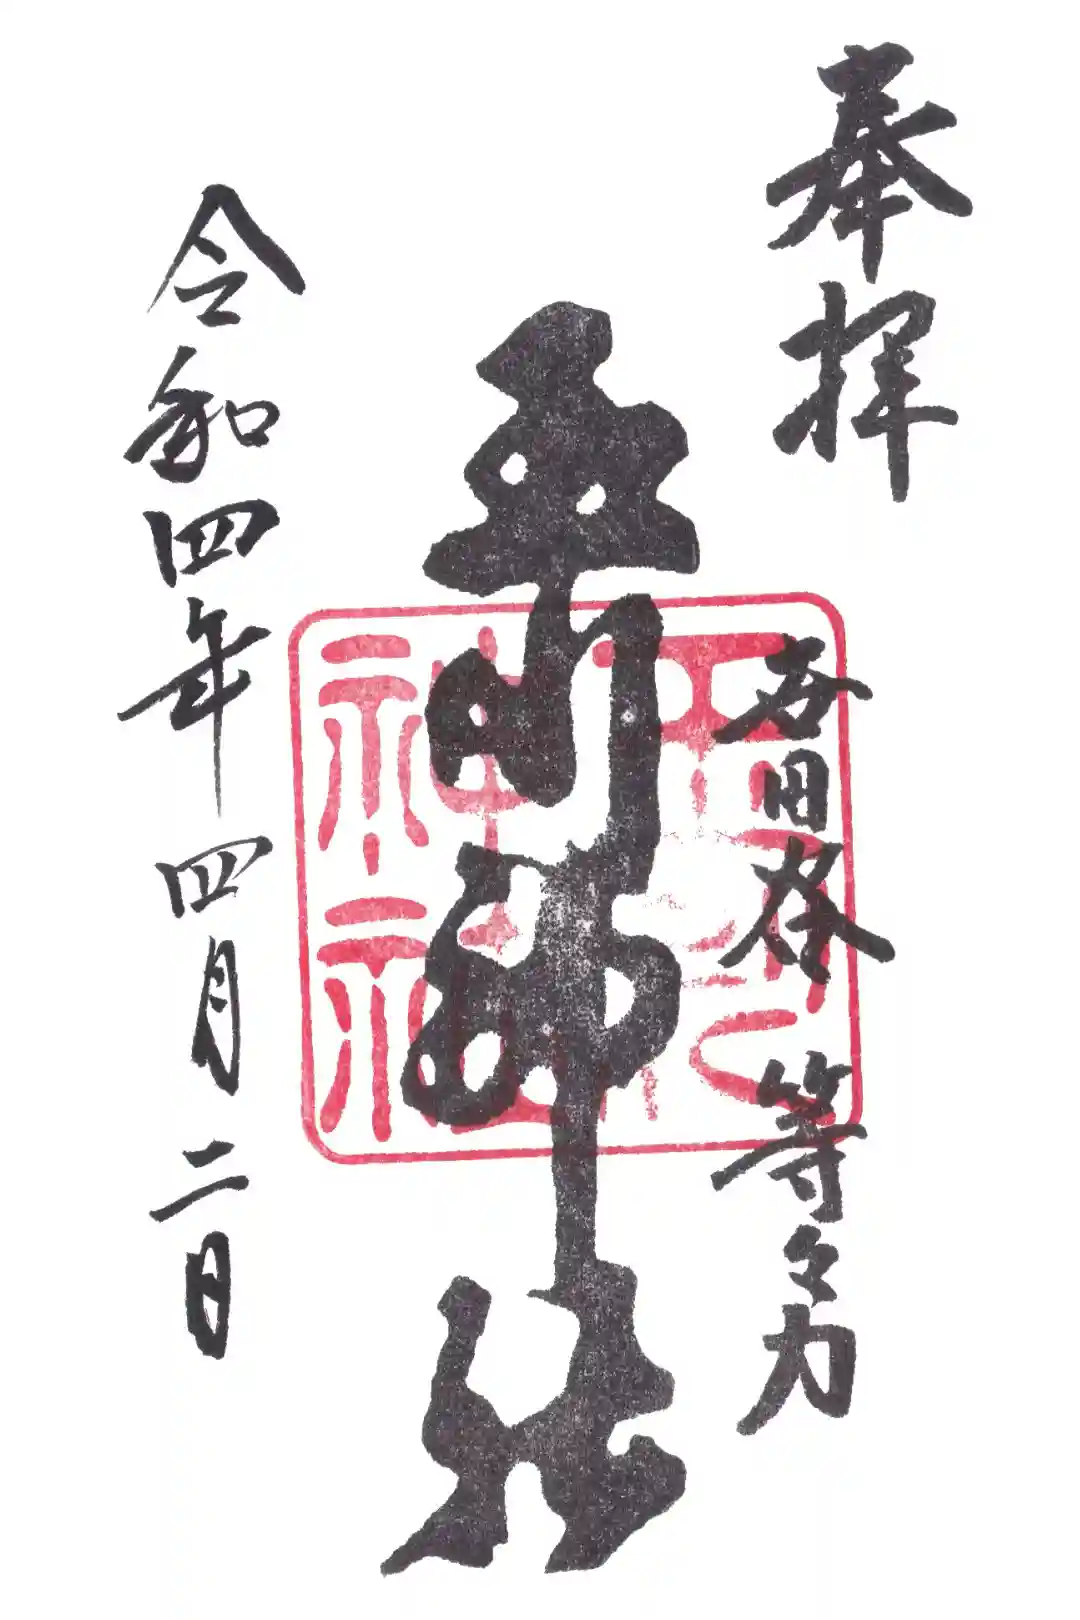 奉拝
世田谷 等々力
玉川神社
令和四年四月二日